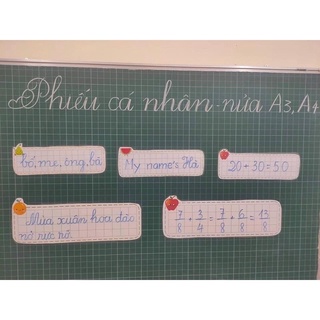 Phiếu cá nhân - nửa A3, A4
bố, mẹ, ông, bà
My name's Hà
20 + 30 = 50
Mùa xuân hoa đào
nở rực rỡ.
7/8 + 3/4 = 7/8 + 6/8 = 13/8